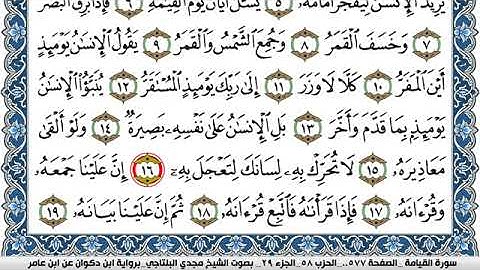 يُرِيدُ ٱلۡإِنسَٰنُ لِيَفۡجُرَ أَمَامَهُۥ ٥ يَسۡـَٔلُ أَيَّانَ يَوۡمُ ٱلۡقِيَٰمَةِ ٦ فَإِذَا بَرِقَ ٱلۡبَصَرُ
٧ وَخَسَفَ ٱلۡقَمَرُ ٨ وَجُمِعَ ٱلشَّمۡسُ وَٱلۡقَمَرُ ٩ يَقُولُ ٱلۡإِنسَٰنُ يَوۡمَئِذٍ
أَيۡنَ ٱلۡمَفَرُّ ١٠ كَلَّا لَا وَزَرَ ١١ إِلَىٰ رَبِّكَ يَوۡمَئِذٍ ٱلۡمُسۡتَقَرُّ ١٢ يُنَبَّؤُاْ ٱلۡإِنسَٰنُ
يَوۡمَئِذِۭ بِمَا قَدَّمَ وَأَخَّرَ ١٣ بَلِ ٱلۡإِنسَٰنُ عَلَىٰ نَفۡسِهِۦ بَصِيرَةٞ ١٤ وَلَوۡ أَلۡقَىٰ
مَعَاذِيرَهُۥ ١٥ لَا تُحَرِّكۡ بِهِۦ لِسَانَكَ لِتَعۡجَلَ بِهِۦٓ ١٦ إِنَّ عَلَيۡنَا جَمۡعَهُۥ
وَقُرۡءَانَهُۥ ١٧ فَإِذَا قَرَأۡنَٰهُ فَٱتَّبِعۡ قُرۡءَانَهُۥ ١٨ ثُمَّ إِنَّ عَلَيۡنَا بَيَانَهُۥ ١٩
سورة القيامة _الصفحة ٥٧٧_.. الحزب ٥٨_الجزء ٢٩_ بصوت الشيخ مجدي البلتاجي_برواية ابن ذكوان عن ابن عامر